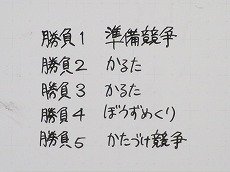 勝負1 準備競争
勝負2 かるた
勝負3 かるた
勝負4 ぼうずめくり
勝負5 かたづけ競争